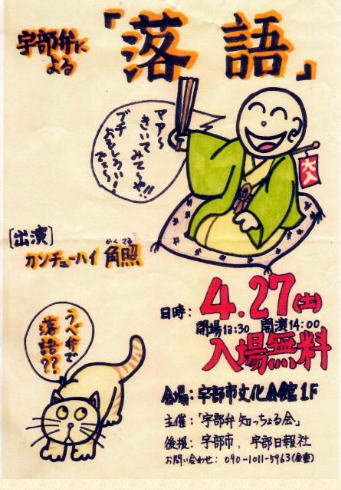 宇部弁に
よる
「落語」
マァ〜
きいて
みてぇや!!
ブチ
おもしろいい〜!
でぇ〜
大入
[出演]
かくてる
カンチューハイ 角照
うべ弁で
落語??
日時: 4.27(土)
開場13:30 開演14:00
入場無料
会場: 宇部市文化会館1F
主催:「宇部弁 知っちょる会」
後援: 宇部市、宇部日報社
お問い合わせ: 090-1011-5963